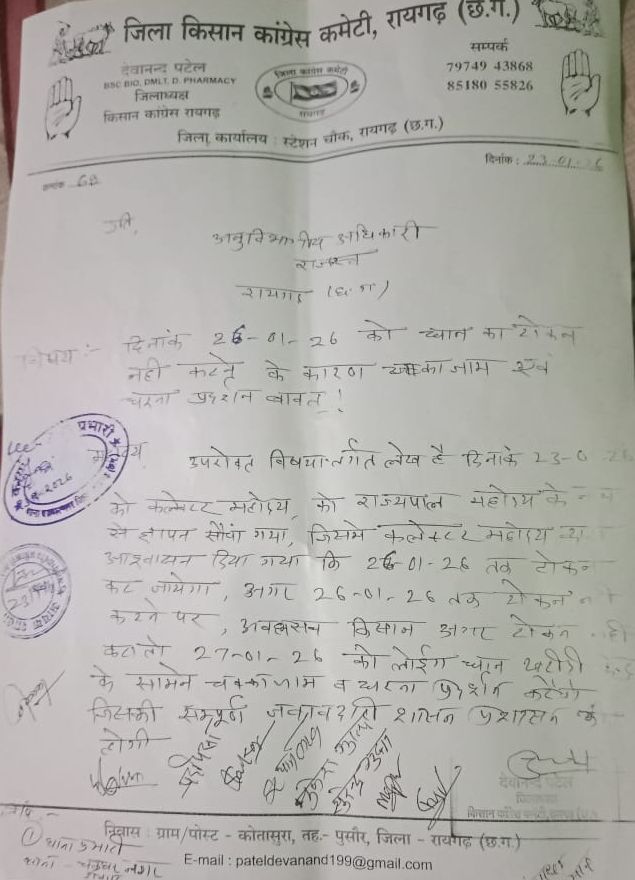 जिला किसान कांग्रेस कमेटी, रायगढ़ (छ.ग.)
देवानन्द पटेल
BSC BIO, DMLT, D. PHARMACY
जिलाध्यक्ष
किसान कांग्रेस रायगढ़
जिला कांग्रेस कमेटी
रायगढ़
सम्पर्क
79749 43868
85180 55826
जिला कार्यालय : स्टेशन चौक, रायगढ़ (छ.ग.)
क्रमांक 68
दिनांक : 23-01-26
प्रति,
अनुविभागीय अधिकारी
राजस्व
रायगढ़ (छ.ग)
विषय :- दिनांक 26-01-26 को धान का टोकन
नही कटने के कारण चक्काजाम एवं
धरना प्रदर्शन बावत् !
महोदय
उपरोक्त विषयान्तर्गत लेख है दिनांक 23-0 26
को कलेक्टर महोदय को राज्यपाल महोदय के
से ज्ञापन सौंपा गया, जिसमे कलेक्टर महोदय
आश्वासन दिया गया कि 26-01-26 तक टोकन
कट जायेगा, अगर 26-01-26 तक टोकन
करने पर, किसान अगर टोकन ही
कटा तो 27-01-26 को लोईंग धान खरीदी
के सामने चक्काजाम व धरना प्रदर्शन करेंगे
जिसकी सम्पूर्ण जवाबदारी शासन प्रशासन
होगी
प्रभारी
देवानन्द पटेल
जिलाध्यक्ष
निवास : ग्राम/पोस्ट - कोतासुरा, तह.- पुसौर, जिला - रायगढ़ (छ.ग.)
E-mail : pateldevanand199@gmail.com
① थाना प्रभारी
थाना - चक्रधर नगर